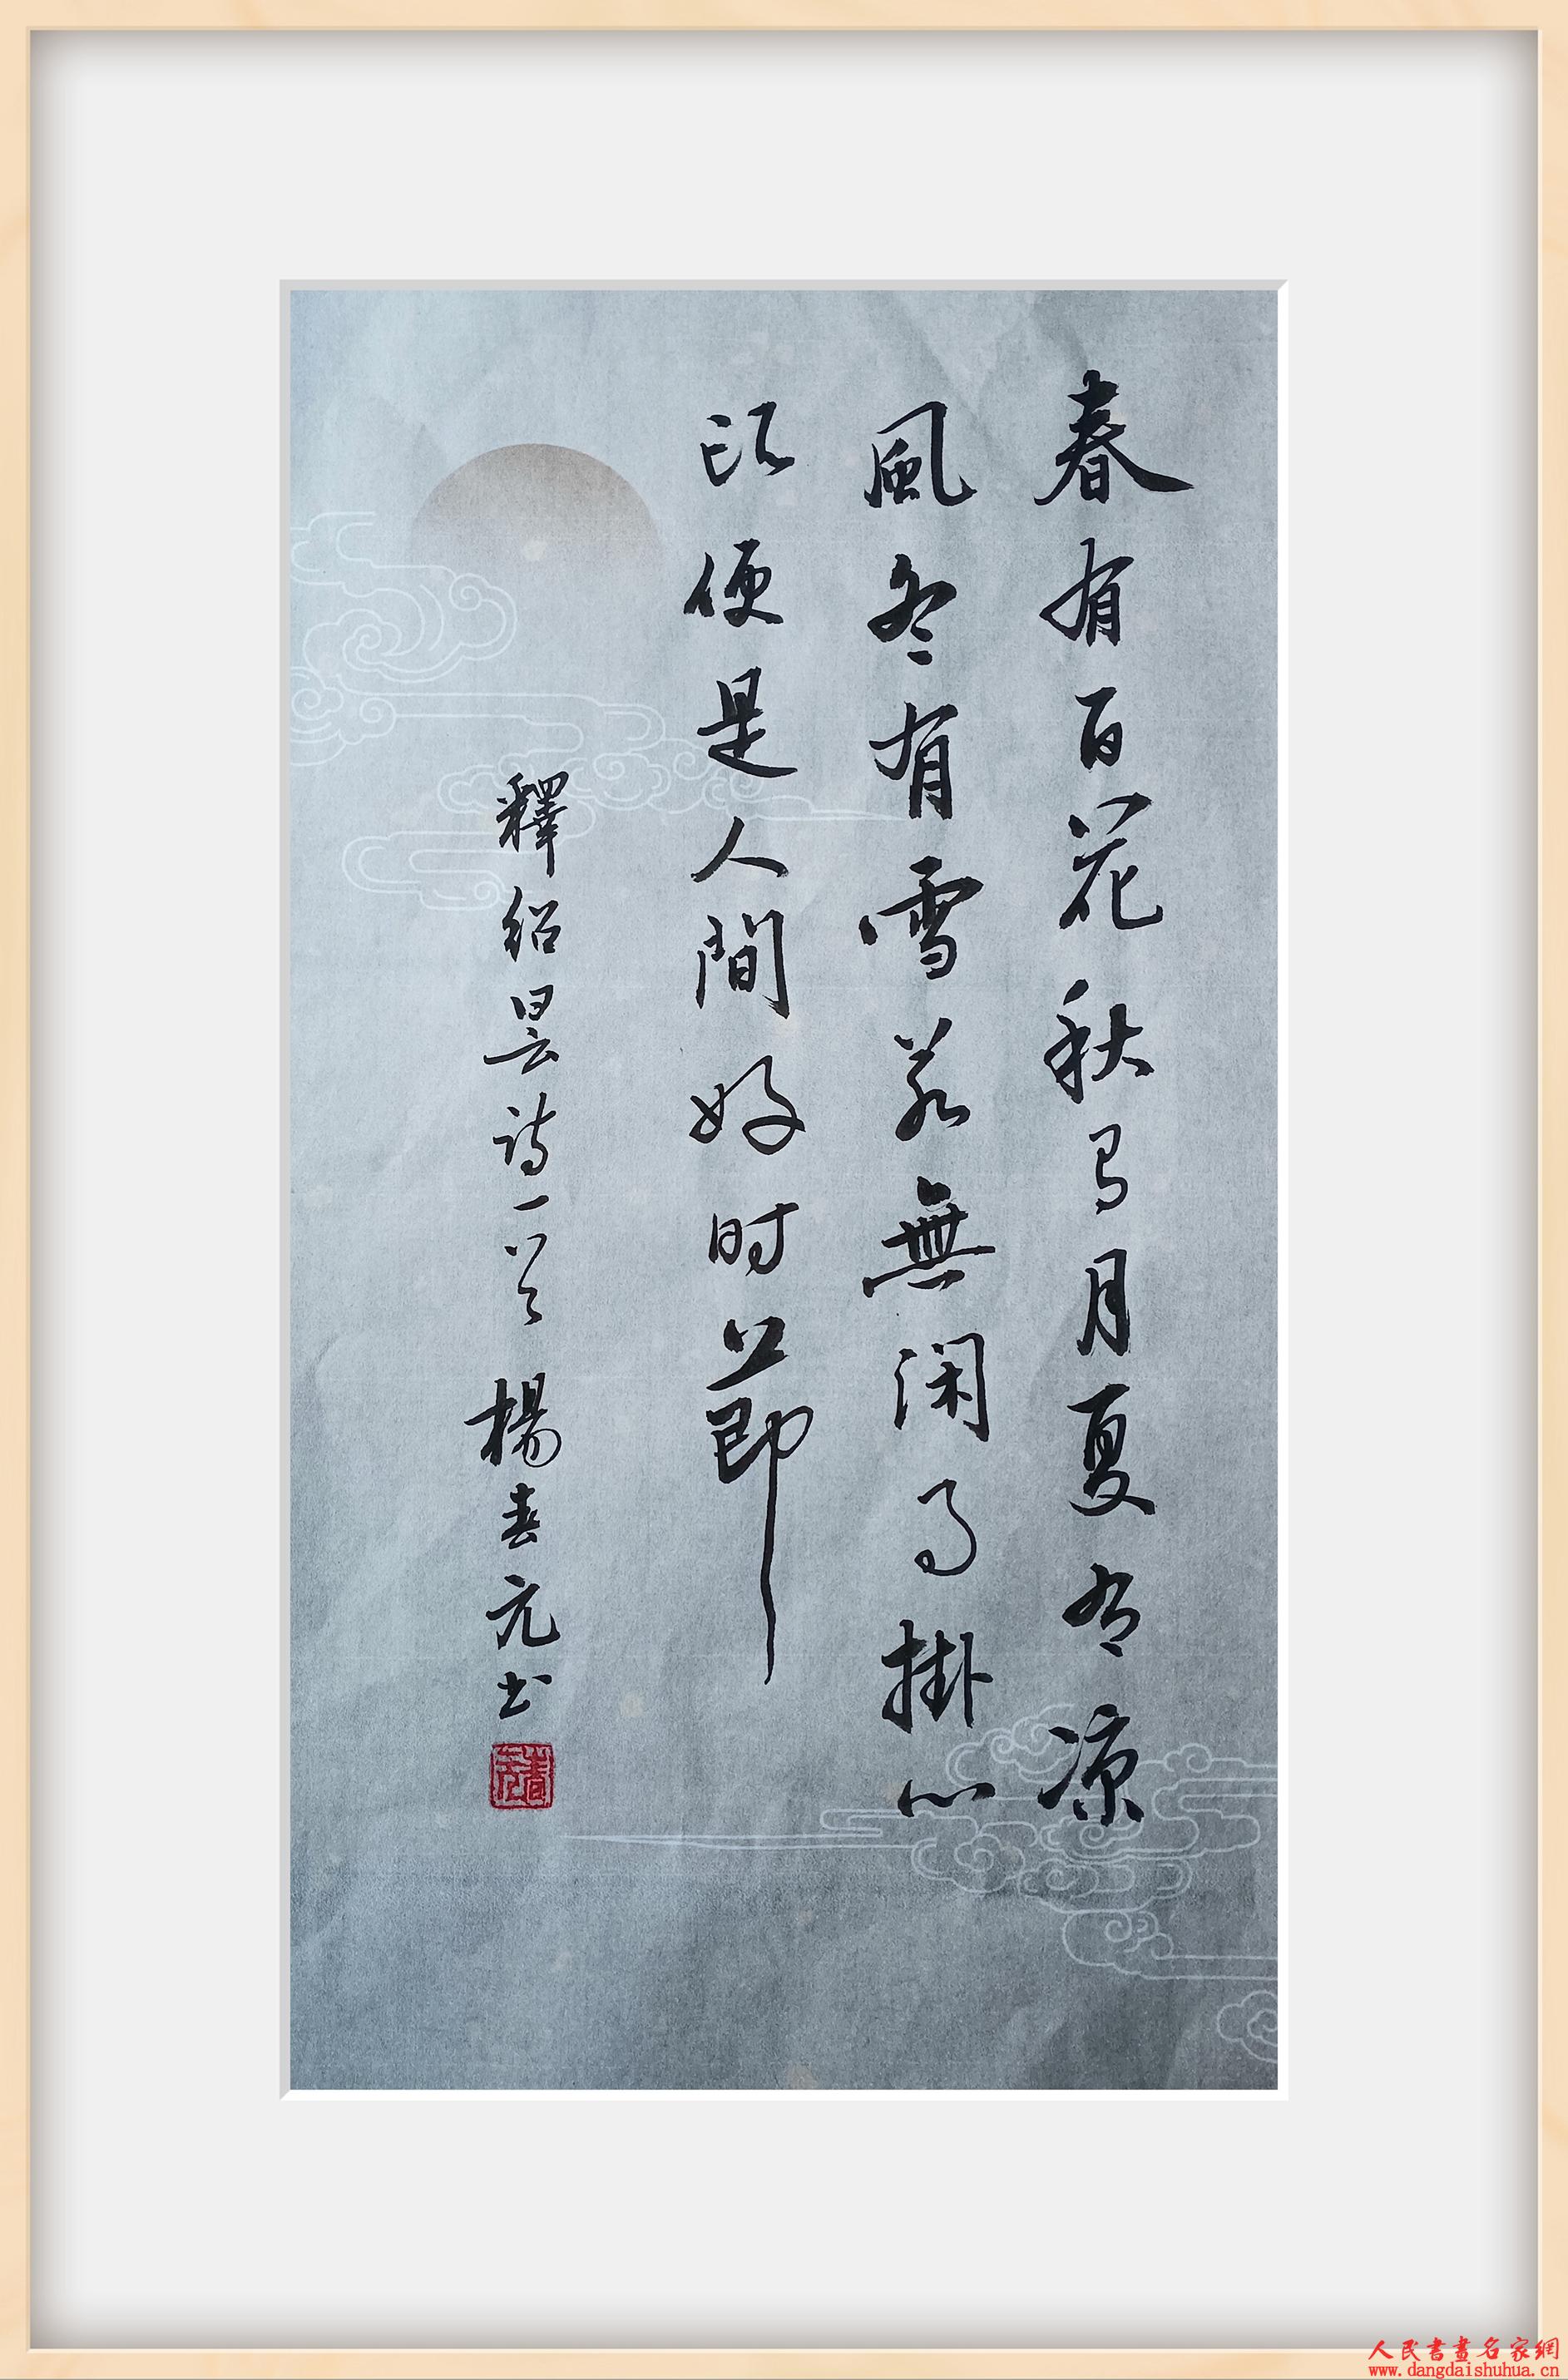 春有百花秋有月夏有凉
風冬有雪若無闲事掛心
头便是人間好时節
釋绍昙诗一首 楊春元书
春元
人民書畫名家網
www.dangdaishuhua.cn